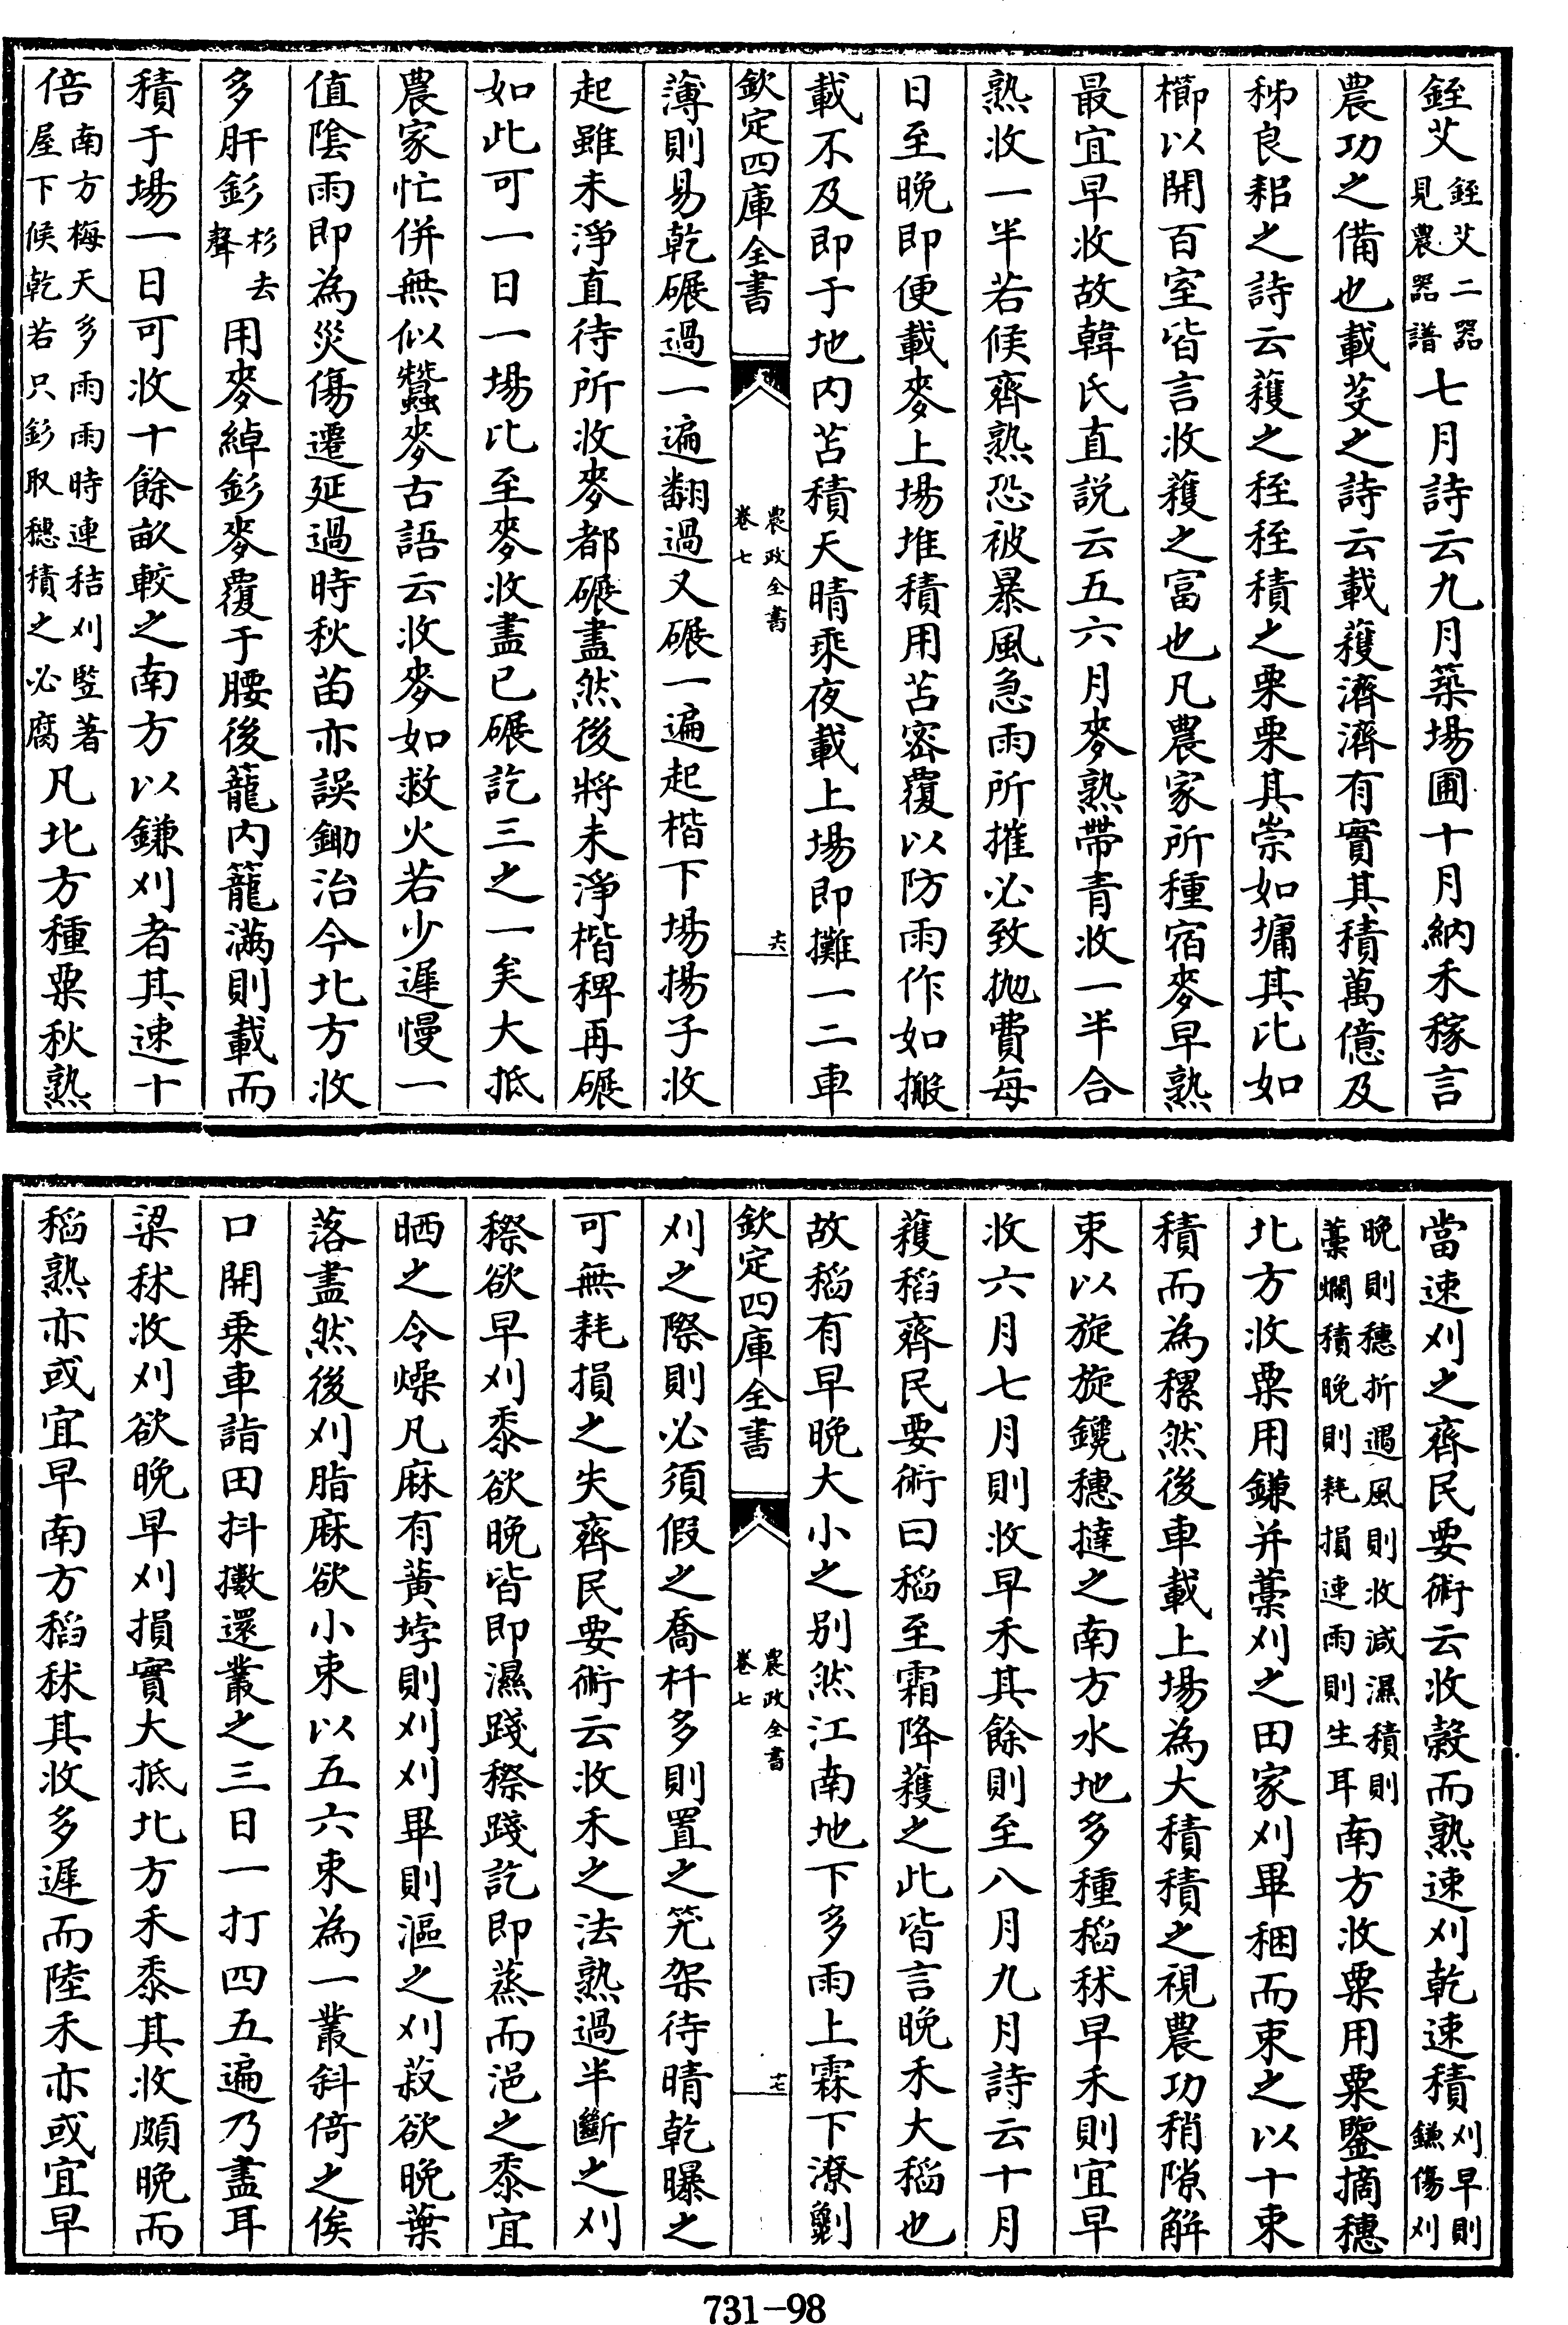 銍艾銍艾二器見農器譜七月詩云九月築場圃十月納禾稼言
農功之備也載芟之詩云載穫濟濟有實其積萬億及
秭良耜之詩云穫之秷秷積之栗栗其崇如墉其比如
櫛以開百室皆言收穫之富也凡農家所種宿麥早熟
最宜早收故韓氏直說云五六月麥熟帶青收一半合
熟收一半若候齊熟恐被暴風急雨所摧必致抛費每
日至晚即便載麥上場堆積用苫密覆以防雨作如搬
載不及即于地内苫積天晴乘夜載上場即攤一二車
欽定四庫全書 農政全書卷七 十六
薄則易乾碾過一遍翻過又碾一遍起楷下場揚子收
起雖未淨直待所收麥都碾盡然後將未淨楷稗再碾
如此可一日一場比至麥收盡已碾訖三之一矣大抵
農家忙併無似蠶麥古語云收麥如救火若少遲慢一
值隂雨即為災傷遷延過時秋苗亦誤鋤治今北方收
多肝釤杉去聲用麥綽釤麥覆于腰後籠内籠滿則載而
積于場一日可收十餘畝較之南方以鎌刈者其速十
倍南方梅天多雨雨時連秸刈竪著屋下候乾若只釤取穗積之必腐凡北方種粟秋熟
當速刈之齊民要術云收穀而熟速刈乾速積刈早則鎌傷刈
晩則穗折遇風則收減濕積則藁爛積晩則耗損連雨則生耳南方收粟用粟鑒摘穗
北方收粟用鎌并藁刈之田家刈畢稇而束之以十束
積而為䅹然後車載上場為大積積之視農功稍隙解
束以旋旋鑱穗撻之南方水地多種稻秫早禾則宜早
收六月七月則收早禾其餘則至八月九月詩云十月
穫稻齊民要術曰稻至霜降穫之此皆言晩禾大稻也
故稻有早晩大小之别然江南地下多雨上霖下潦劉
欽定四庫全書 農政全書卷七 十七
刈之際則必須假之喬扦多則置之笐架待晴乾曝之
可無耗損之失齊民要術云收禾之法熟過半斷之刈
穄欲早刈黍欲晩皆即濕踐穄踐訖即蒸而浥之黍宜
晒之令燥凡麻有黄㘿則刈刈畢則漚之刈菽欲晩葉
落盡然後刈脂麻欲小束以五六束為一叢斜倚之俟
口開乗車詣田抖擻還叢之三日一打四五遍乃盡耳
梁秫收刈欲晩早刈損實大抵北方禾黍其收頗晩而
稻熟亦或宜早南方稻秫其收多遲而陸禾亦或宜早
731-98